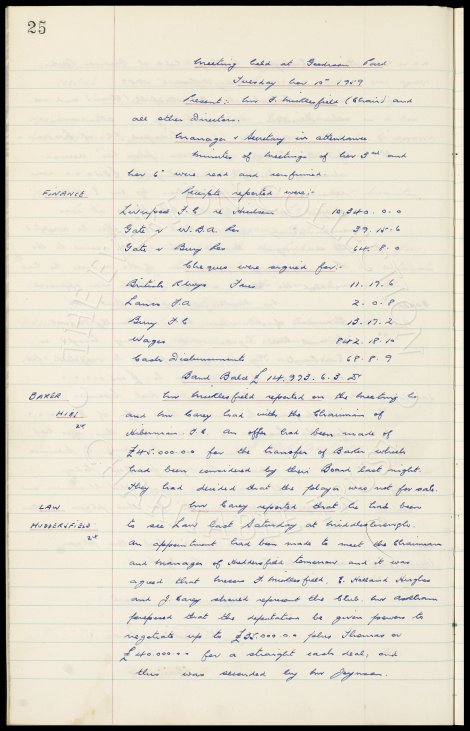 25
Meeting held at Goodison Park
Tuesday Nov 10th 1959
Present:- Mr F. Micklesfield (Chair) and
all other Directors.
Manager & Secretary in attendance
Minutes of Meetings of Nov 3rd and
Nov 6th were read and confirmed.
FINANCE
Receipts reported were:-
Liverpool F.C. re Hickson 10,340. 0. 0
Gate v W.B.A. Res 39. 15. 6
Gate v Bury Res 64. 8. 0
Cheques were signed for:-
British Rlways Fares 11. 17. 6
Lancs F.A. 2. 0. 8
Bury F.C 13. 17. 2
Wages 842. 18. 10
Cash Disbursements 68. 8. 9
Bank Balce £14,973. 6. 3 Dr
BAKER
HIBS
Mr Micklesfield reported on the meeting he
and Mr Carey had with the Chairman of
Hibernian F.C. An offer had been made of
£45.000.0.0 for the transfer of Baker which
had been considered by their Board last night.
They had decided that the player was not for sale.
LAW
HUDDERSFIELD
Mr Carey reported that he had been
to see Law last Saturday at Middlesbrough.
An appointment had been made to meet the Chairman
and Manager of Huddersfield tomorrow and it was
agreed that Messrs F. Micklesfield, E. Holland Hughes
and J. Carey should represent the Club. Mr Askham
proposed that the deputation be given powers to
negotiate up to £35.000.0.0 plus Thomas or
£40.000.0.0 for a straight cash deal, and
this was seconded by Mr Joynson.